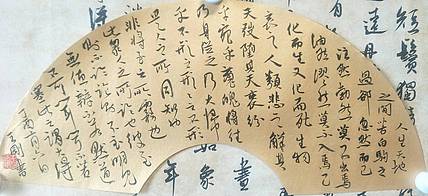 短鬢獨
遠
人生天地
之间若白驹之
過郤忽然而已
注然勃然莫不出焉
油然漻然莫不入焉已
化而生又化而死生物
哀之人類悲之解其
天弢隨其天袠纷
乎宛乎魂魄將往
乃身從之乃大歸
乎不形之形形之不
形是人之所同知也
非將至之所務也此
眾人之所同論也彼至
則不論論則不至明見
無值辯不若默道
不可聞聞不若
塞此之謂大得
如象
年